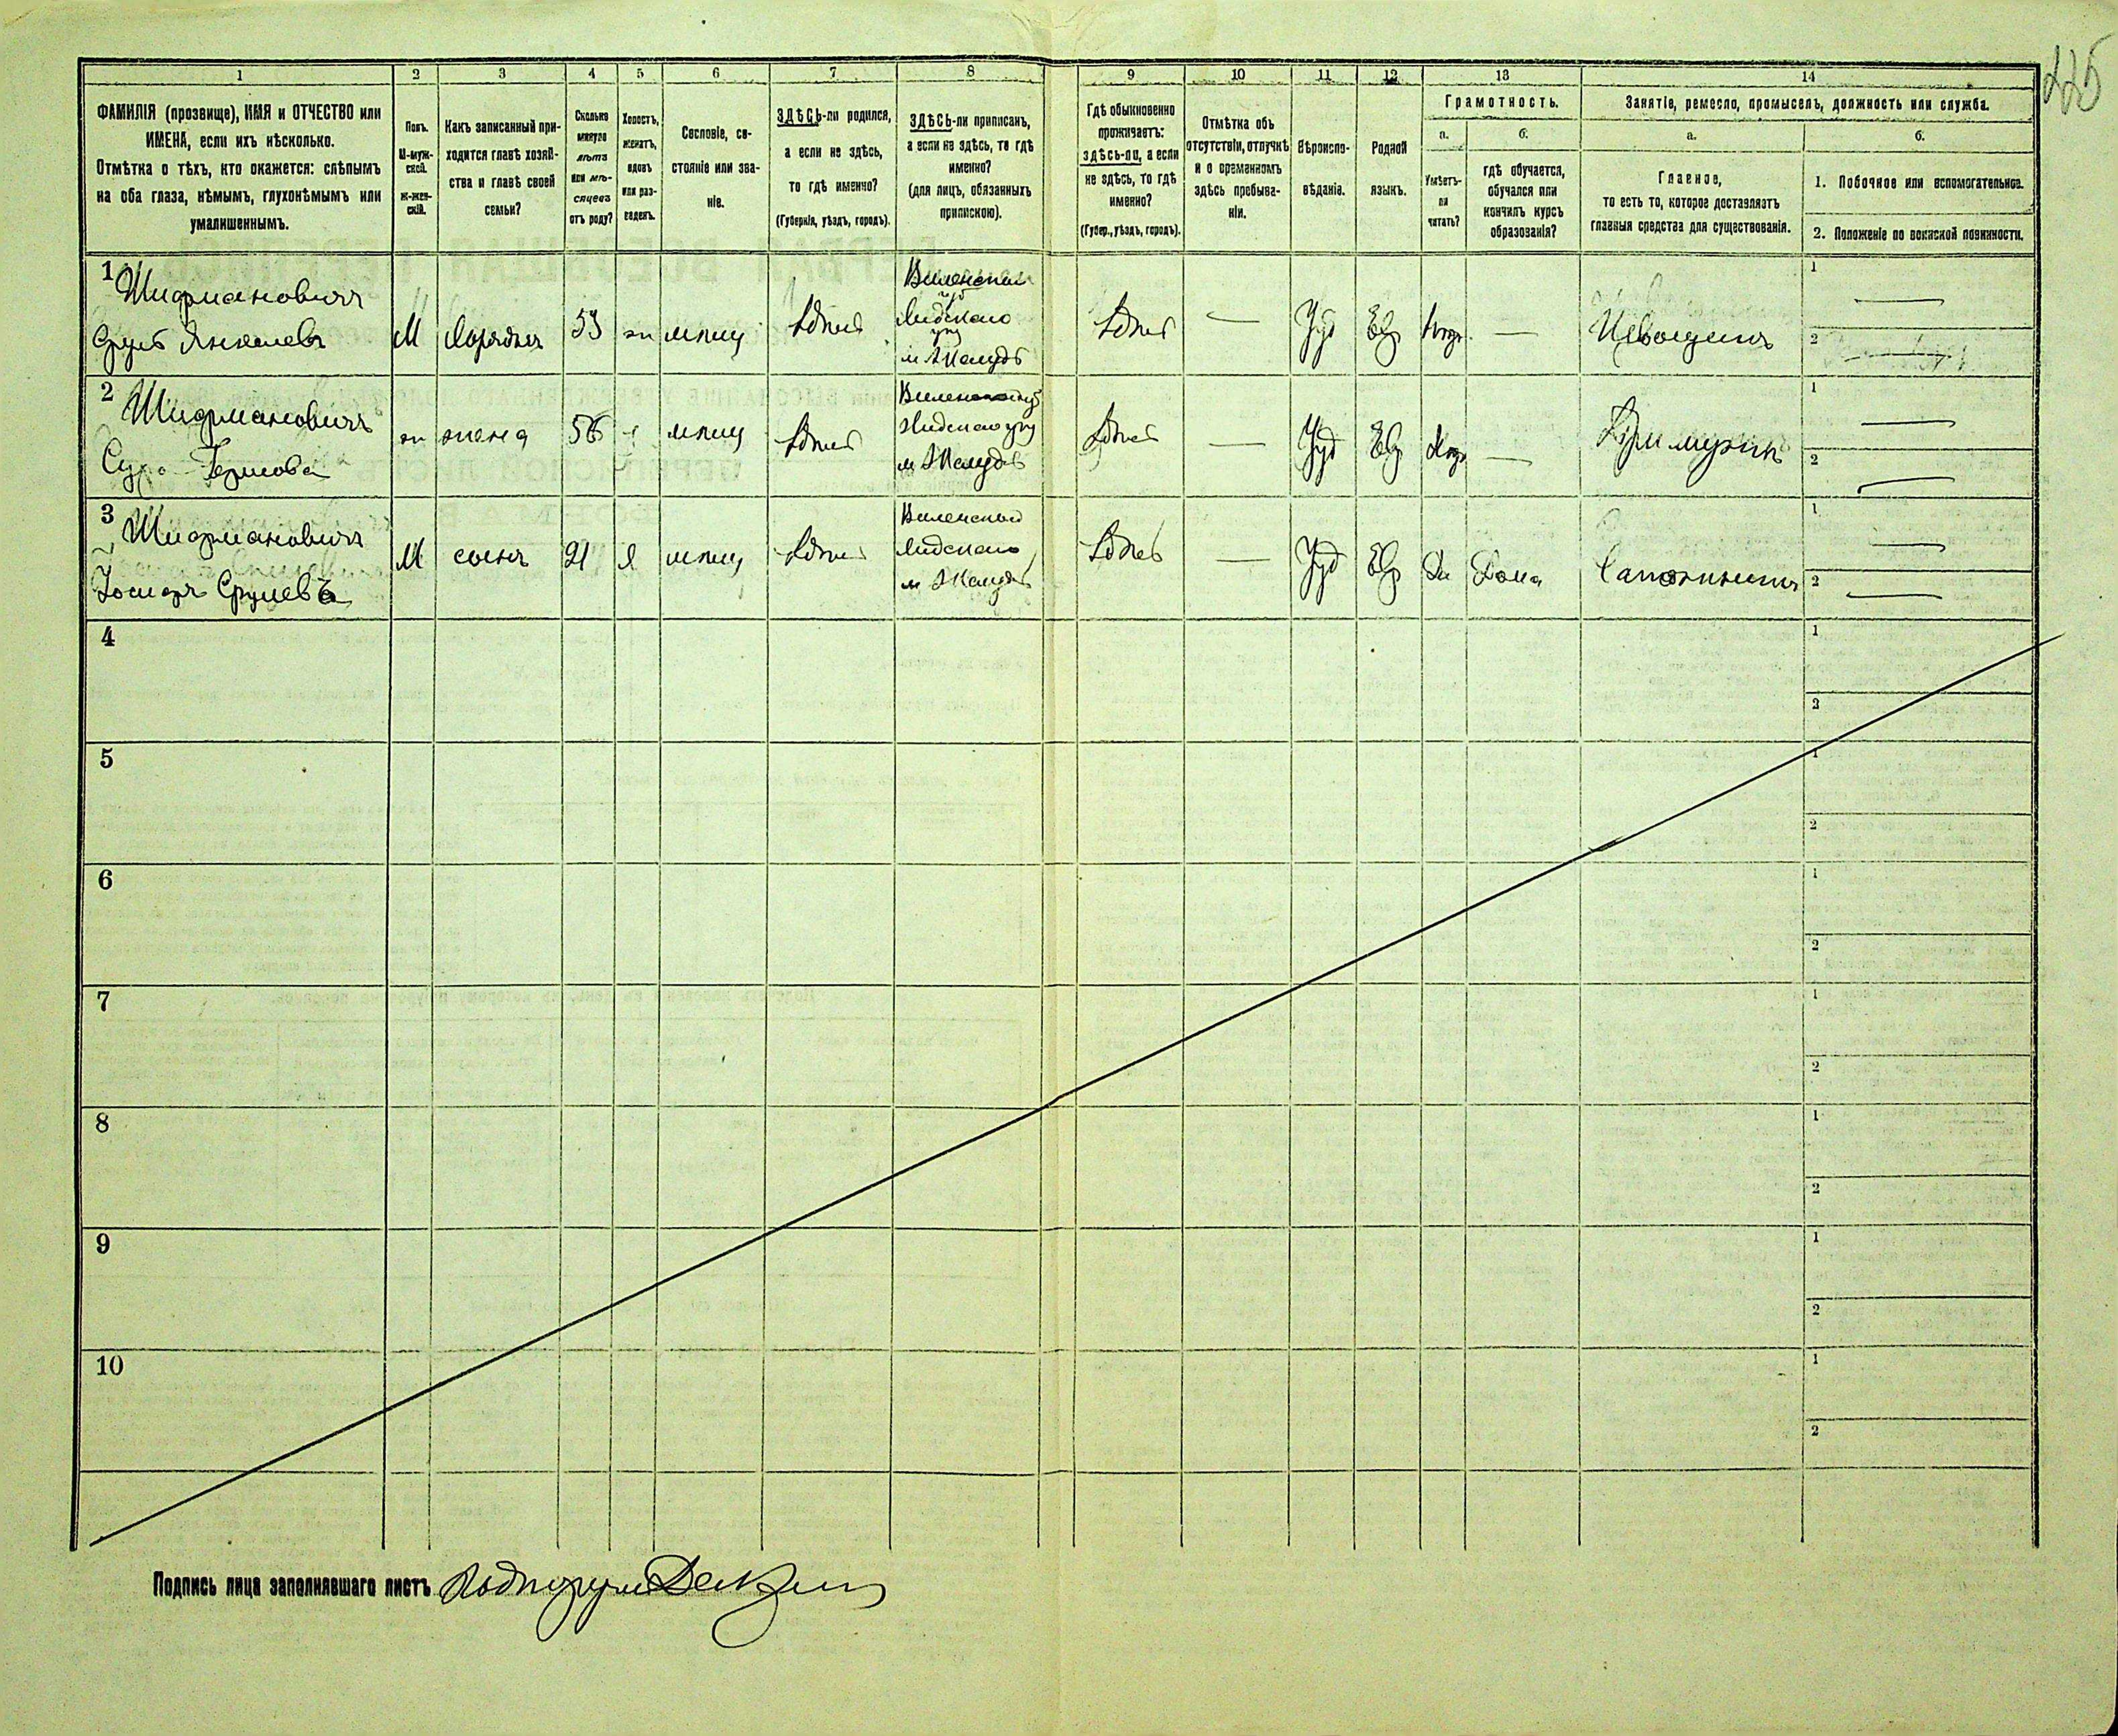 225
1 2 3 4 5 6 7 8 9 10 11 12 13 14
ФАМИЛІЯ (прозвище), ИМЯ и ОТЧЕСТВО или
ИМЕНА, если ихъ нѣсколько.
Отмѣтка о тѣхъ, кто окажется: слѣпымъ
на оба глаза, нѣмымъ, глухонѣмымъ или
умалишеннымъ.
Полъ.
М-муж-
ской.
Ж-жен-
скій.
Какъ записанный при-
ходится главѣ хозяй-
ства и главѣ своей
семьи?
Сколько
минуло
лѣтъ
или мѣ-
сяцевъ
отъ роду?
Холостъ,
женатъ,
вдовъ
или раз-
веденъ.
Сословіе, со-
стояніе или зва-
ніе.
ЗДѢСЬ-ли родился,
а если не здѣсь,
то гдѣ именно?
(Губернія, уѣздъ, городъ).
ЗДѢСЬ-ли приписанъ,
а если не здѣсь, то гдѣ
именно?
(для лицъ, обязанныхъ
припискою).
Гдѣ обыкновенно
проживаетъ:
здѣсь-ли, а если
не здѣсь, то гдѣ
именно?
(Губер., уѣздъ, городъ).
Отмѣтка объ
отсутствіи, отлучкѣ
и о временномъ
здѣсь пребыва-
ніи.
Вѣроиспо-
вѣданіе.
Родной
языкъ.
Грамотность.
а.
Умѣетъ-
ли
читать?
б.
гдѣ обучается,
обучался или
кончилъ курсъ
образованія?
Занятіе, ремесло, промыселъ, должность или служба.
а.
Главное,
то есть то, которое доставляетъ
главныя средства для существованія.
б.
1. Побочное или вспомогательное.
2. Положеніе по воинской повинности.
1
Шифмановичъ
Сруль Янкелевъ
М
53
ж
мѣщ
здѣсь
Виленской
губ
Лидскаго
уѣз
м Жолудь
здѣсь
—
Іуд
Евр
—
1 —
2 —
2
Шифмановичъ
Гершова
ж
жена
56
мѣщ
здѣсь
Лидскаго уѣз
м Жолудь
здѣсь
—
Іуд
Евр
—
При мужѣ
1 —
2 —
3
Шифмановичъ
Срулевъ
М
сынъ
21
х
мѣщ
здѣсь
Виленской
Лидскаго
м Жолудь
здѣсь
—
Іуд
Евр
Да
Дома
Сапожникъ
1 —
2 —
4
1
2
5
1
2
6
1
2
7
1
2
8
1
2
9
1
2
10
1
2
Подпись лица заполнявшаго листъ